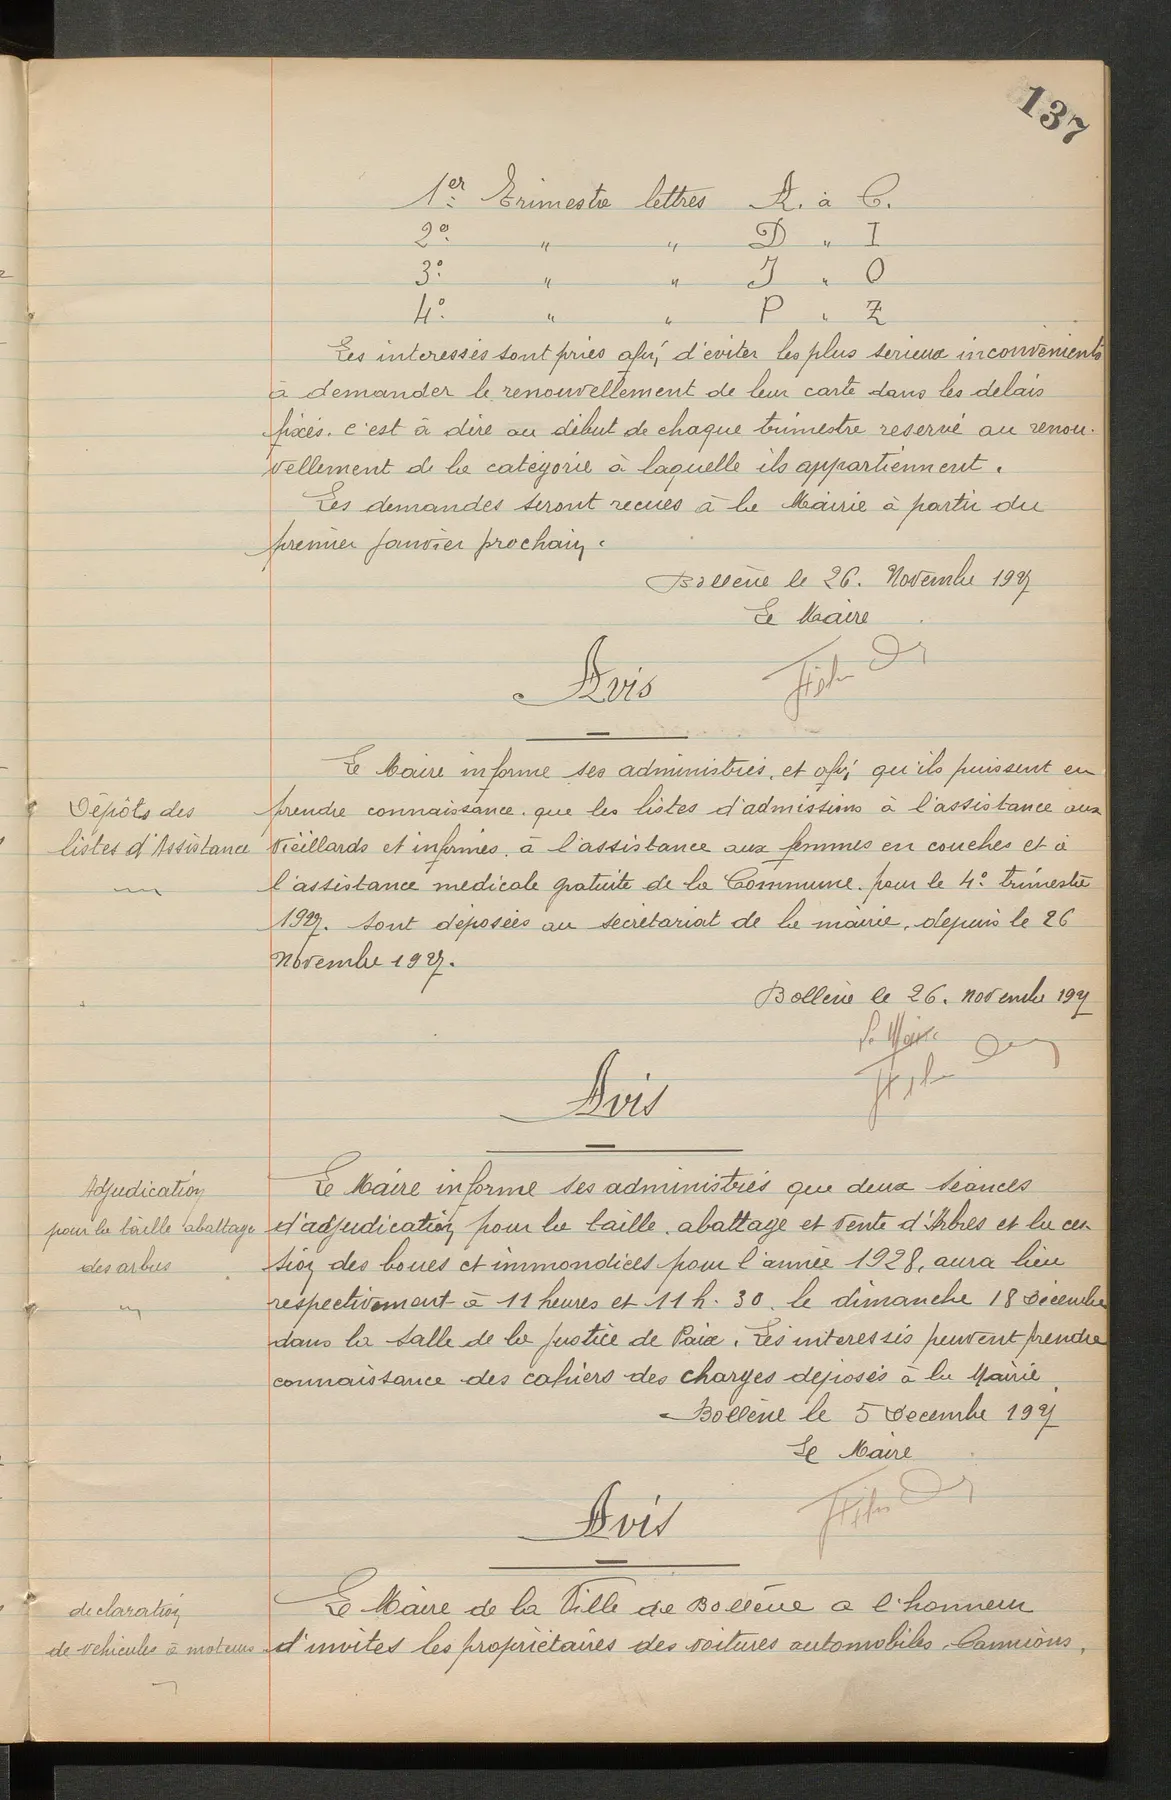 137
1er Trimestre lettres A. à C.
2e " " D " I
3e " " J " O
4e " " P " Z
Les interessés sont priés afin d'éviter les plus serieux inconvenients
à demander le renouvellement de leur carte dans les delais
fixés. c'est à dire au début de chaque trimestre reservé au renou-
vellement de la catégorie à laquelle ils appartiennent.
Les demandes seront recues à la Mairie à partir du
premier janvier prochain.
Bollène le 26. Novembre 1927
Le Maire
Avis
Le Maire informe ses administrés, et afin qu'ils puissent en
Dépôts des
listes d'Assistance
prendre connaissance. que les listes d'admissions à l'assistance aux
vieillards et infirmes. à l'assistance aux femmes en couches et à
l'assistance medicale gratuite de la Commune. pour le 4e trimestre
1927. sont déposées au secretariat de la mairie, depuis le 26
Novembre 1927.
Bollène le 26. novembre 1927
Le Maire
Avis
Adjudication
pour la taille abattage
des arbres
Le Maire informe ses administrés que deux séances
d'adjudication pour la taille. abattage et vente d'Arbres et la ces-
sion des boues et immondices pour l'année 1928, aura lieu
respectivement à 11 heures et 11 h. 30. le dimanche 18 Décembre
dans la salle de la Justice de Paix. Les interessés peuvent prendre
connaissance des cahiers des charges déposés à la Mairie.
Bollène le 5 Decembre 1927
Le Maire
Avis
declaration
de vehicules à moteurs
Le Maire de la Ville de Bollène a l'honneur
d'invites les propriétaires des voitures automobiles. Camions,